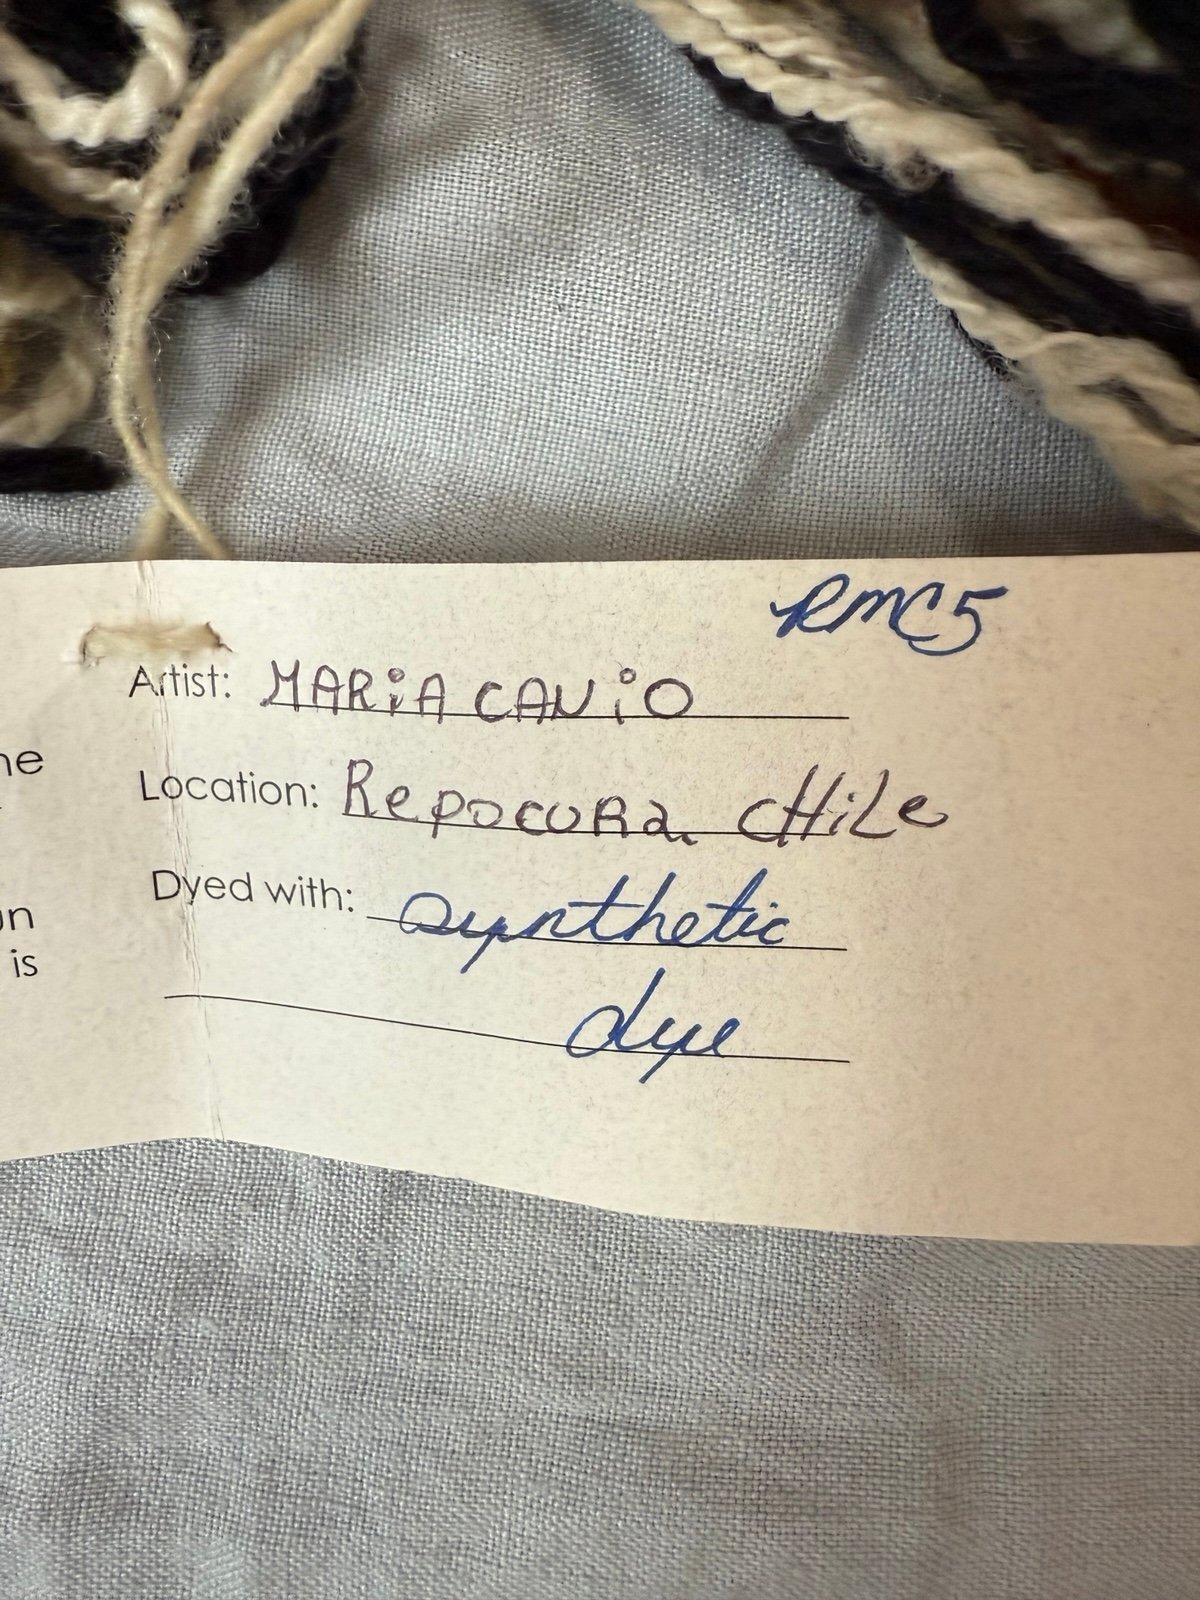 RMC5
Artist: MARiA CANiO
Location: Repocura CHiLe
ne
Dyed with: synthetic
un
is
dye